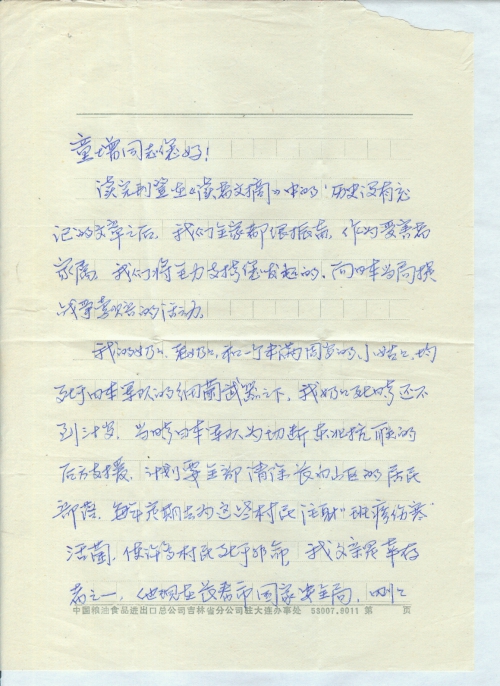 童增同志您好!
读完刊登在《读者文摘》中的“历史没有忘
记”的文章之后，我们全家都很振奋，作为受害者
家属，我们将全力支持您发起的，向日本当局提
战争索赔的活动。
我的奶奶，和一个未满周岁的小姑，均
死于日本军队的细菌武器之下，我奶奶死时还不
到三十岁，当时日本军队为切断东北抗联的
后方支援，计划要全部清除长白山区的居民
部落，每年定期去为这些村民注射“斑疹伤寒
活菌”，使许多村民死于非命，我父亲是幸存
者之一，他现在长春市国家安全局，
中国粮油食品进出口总公司吉林省分公司驻大连办事处 53007.8011 第 页